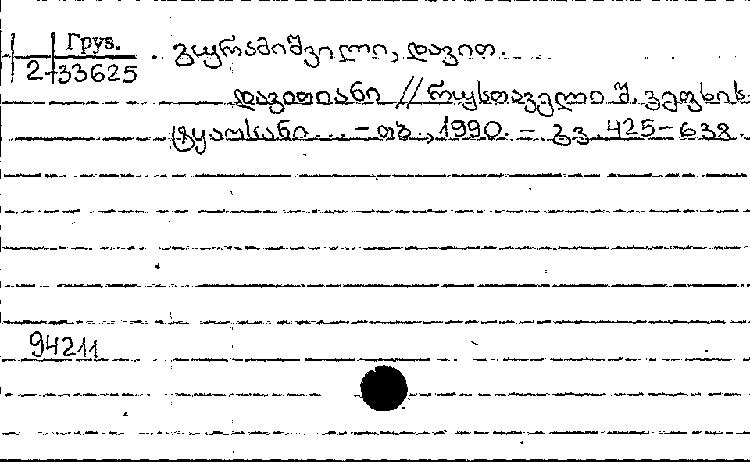 Груз.
2-33625
გურამიშვილი, დავით.
დავითიანი // რუსთაველი შ. ვეფხის
ტყაოსანი... - თბ., 1990. - გვ. 425-638.
94211